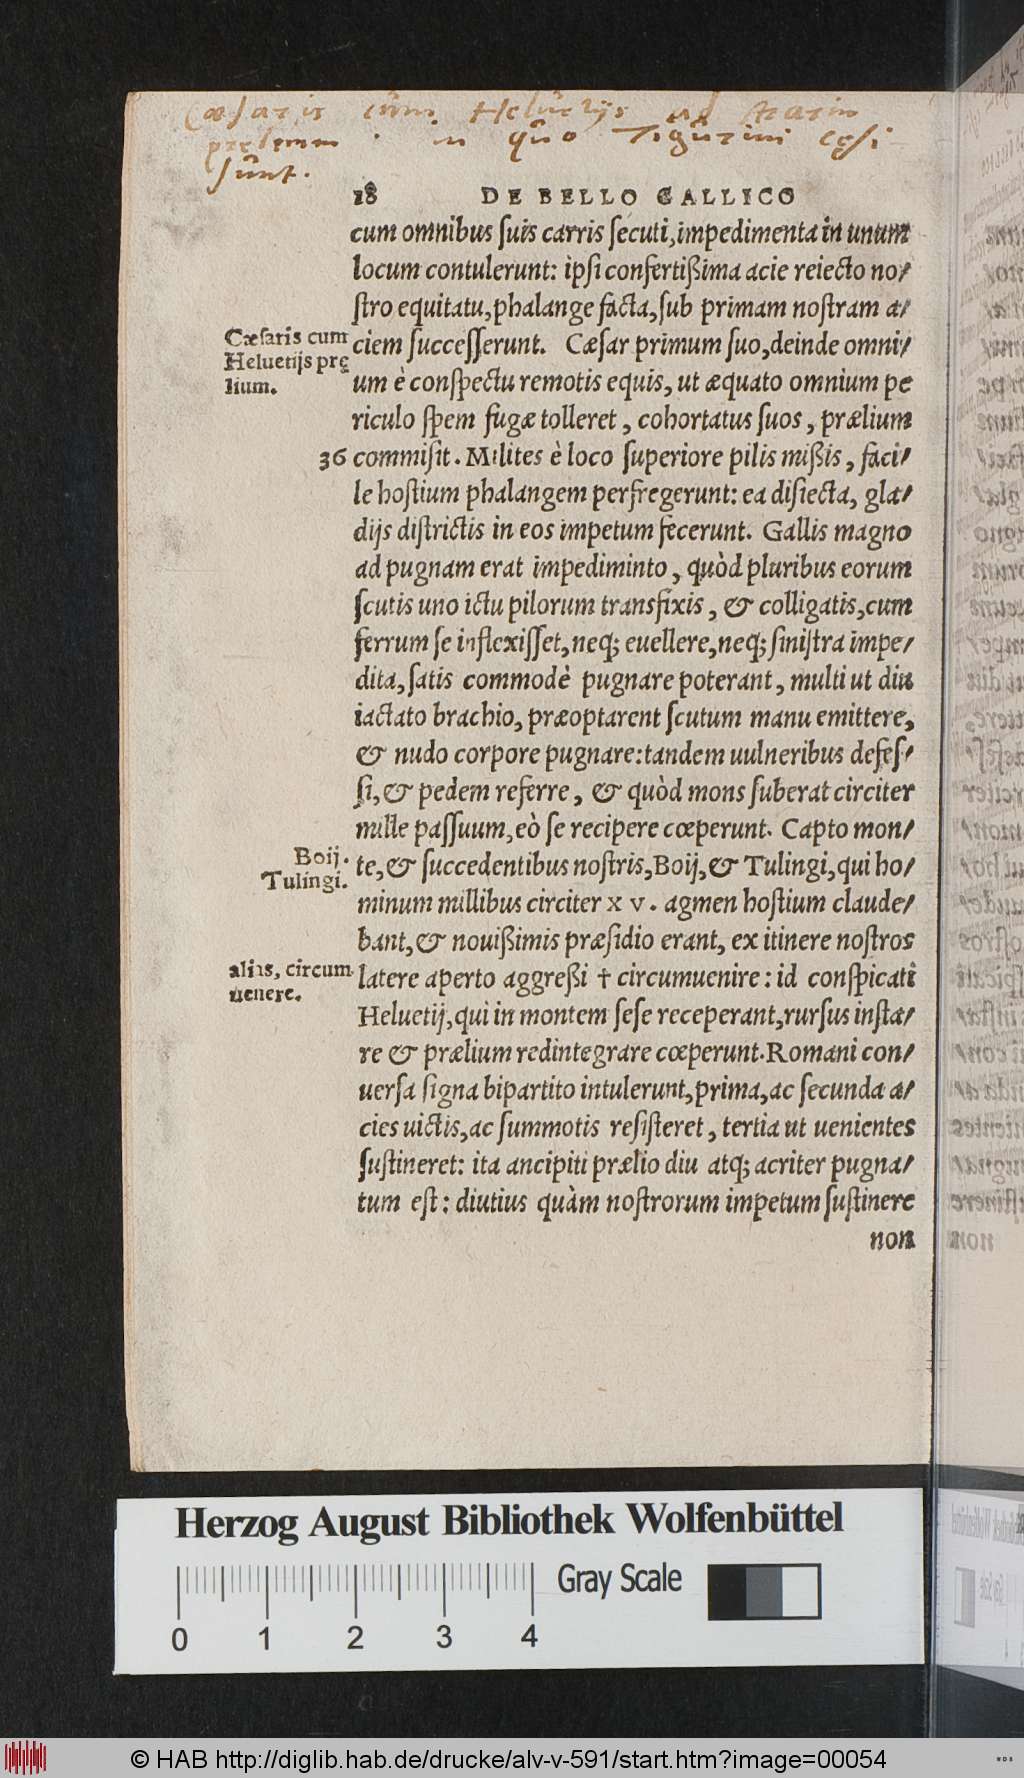 Cæsaris cum Heluetijs ad Ararim
prelium in quo Tigurini cęsi
sunt.
18 DE BELLO GALLICO
cum omnibus suis carris secuti, impedimenta in unum
locum contulerunt: ipsi confertißima acie reiecto no/
stro equitatu, phalange facta, sub primam nostram a/
Cæsaris cum
Heluetijs prę
lium.
ciem successerunt. Cæsar primum suo, deinde omni/
um è conspectu remotis equis, ut æquato omnium pe
riculo spem fugæ tolleret, cohortatus suos, prælium
36 commisit. Milites è loco superiore pilis mißis, faci/
le hostium phalangem perfregerunt: ea disiecta, gla/
dijs districtis in eos impetum fecerunt. Gallis magno
ad pugnam erat impediminto, quòd pluribus eorum
scutis uno ictu pilorum transfixis, & colligatis, cum
ferrum se inflexisset, neq; euellere, neq; sinistra impe/
dita, satis commodè pugnare poterant, multi ut diu
iactato brachio, præoptarent scutum manu emittere,
& nudo corpore pugnare: tandem uulneribus defes/
si, & pedem referre, & quòd mons suberat circiter
mille passuum, eò se recipere cœperunt. Capto mon/
Boij.
Tulingi.
te, & succedentibus nostris, Boij, & Tulingi, qui ho/
minum millibus circiter x v. agmen hostium claude/
bant, & nouißimis præsidio erant, ex itinere nostros
alias, circum
uenere.
latere aperto aggreßi † circumuenire: id conspicati
Heluetij, qui in montem sese receperant, rursus insta/
re & prælium redintegrare cœperunt. Romani con/
uersa signa bipartito intulerunt, prima, ac secunda a/
cies uictis, ac summotis resisteret, tertia ut uenientes
sustineret: ita ancipiti prælio diu atq; acriter pugna/
tum est: diutius quàm nostrorum impetum sustinere
non
Herzog August Bibliothek Wolfenbüttel
Gray Scale
0 1 2 3 4
© HAB http://diglib.hab.de/drucke/alv-v-591/start.htm?image=00054